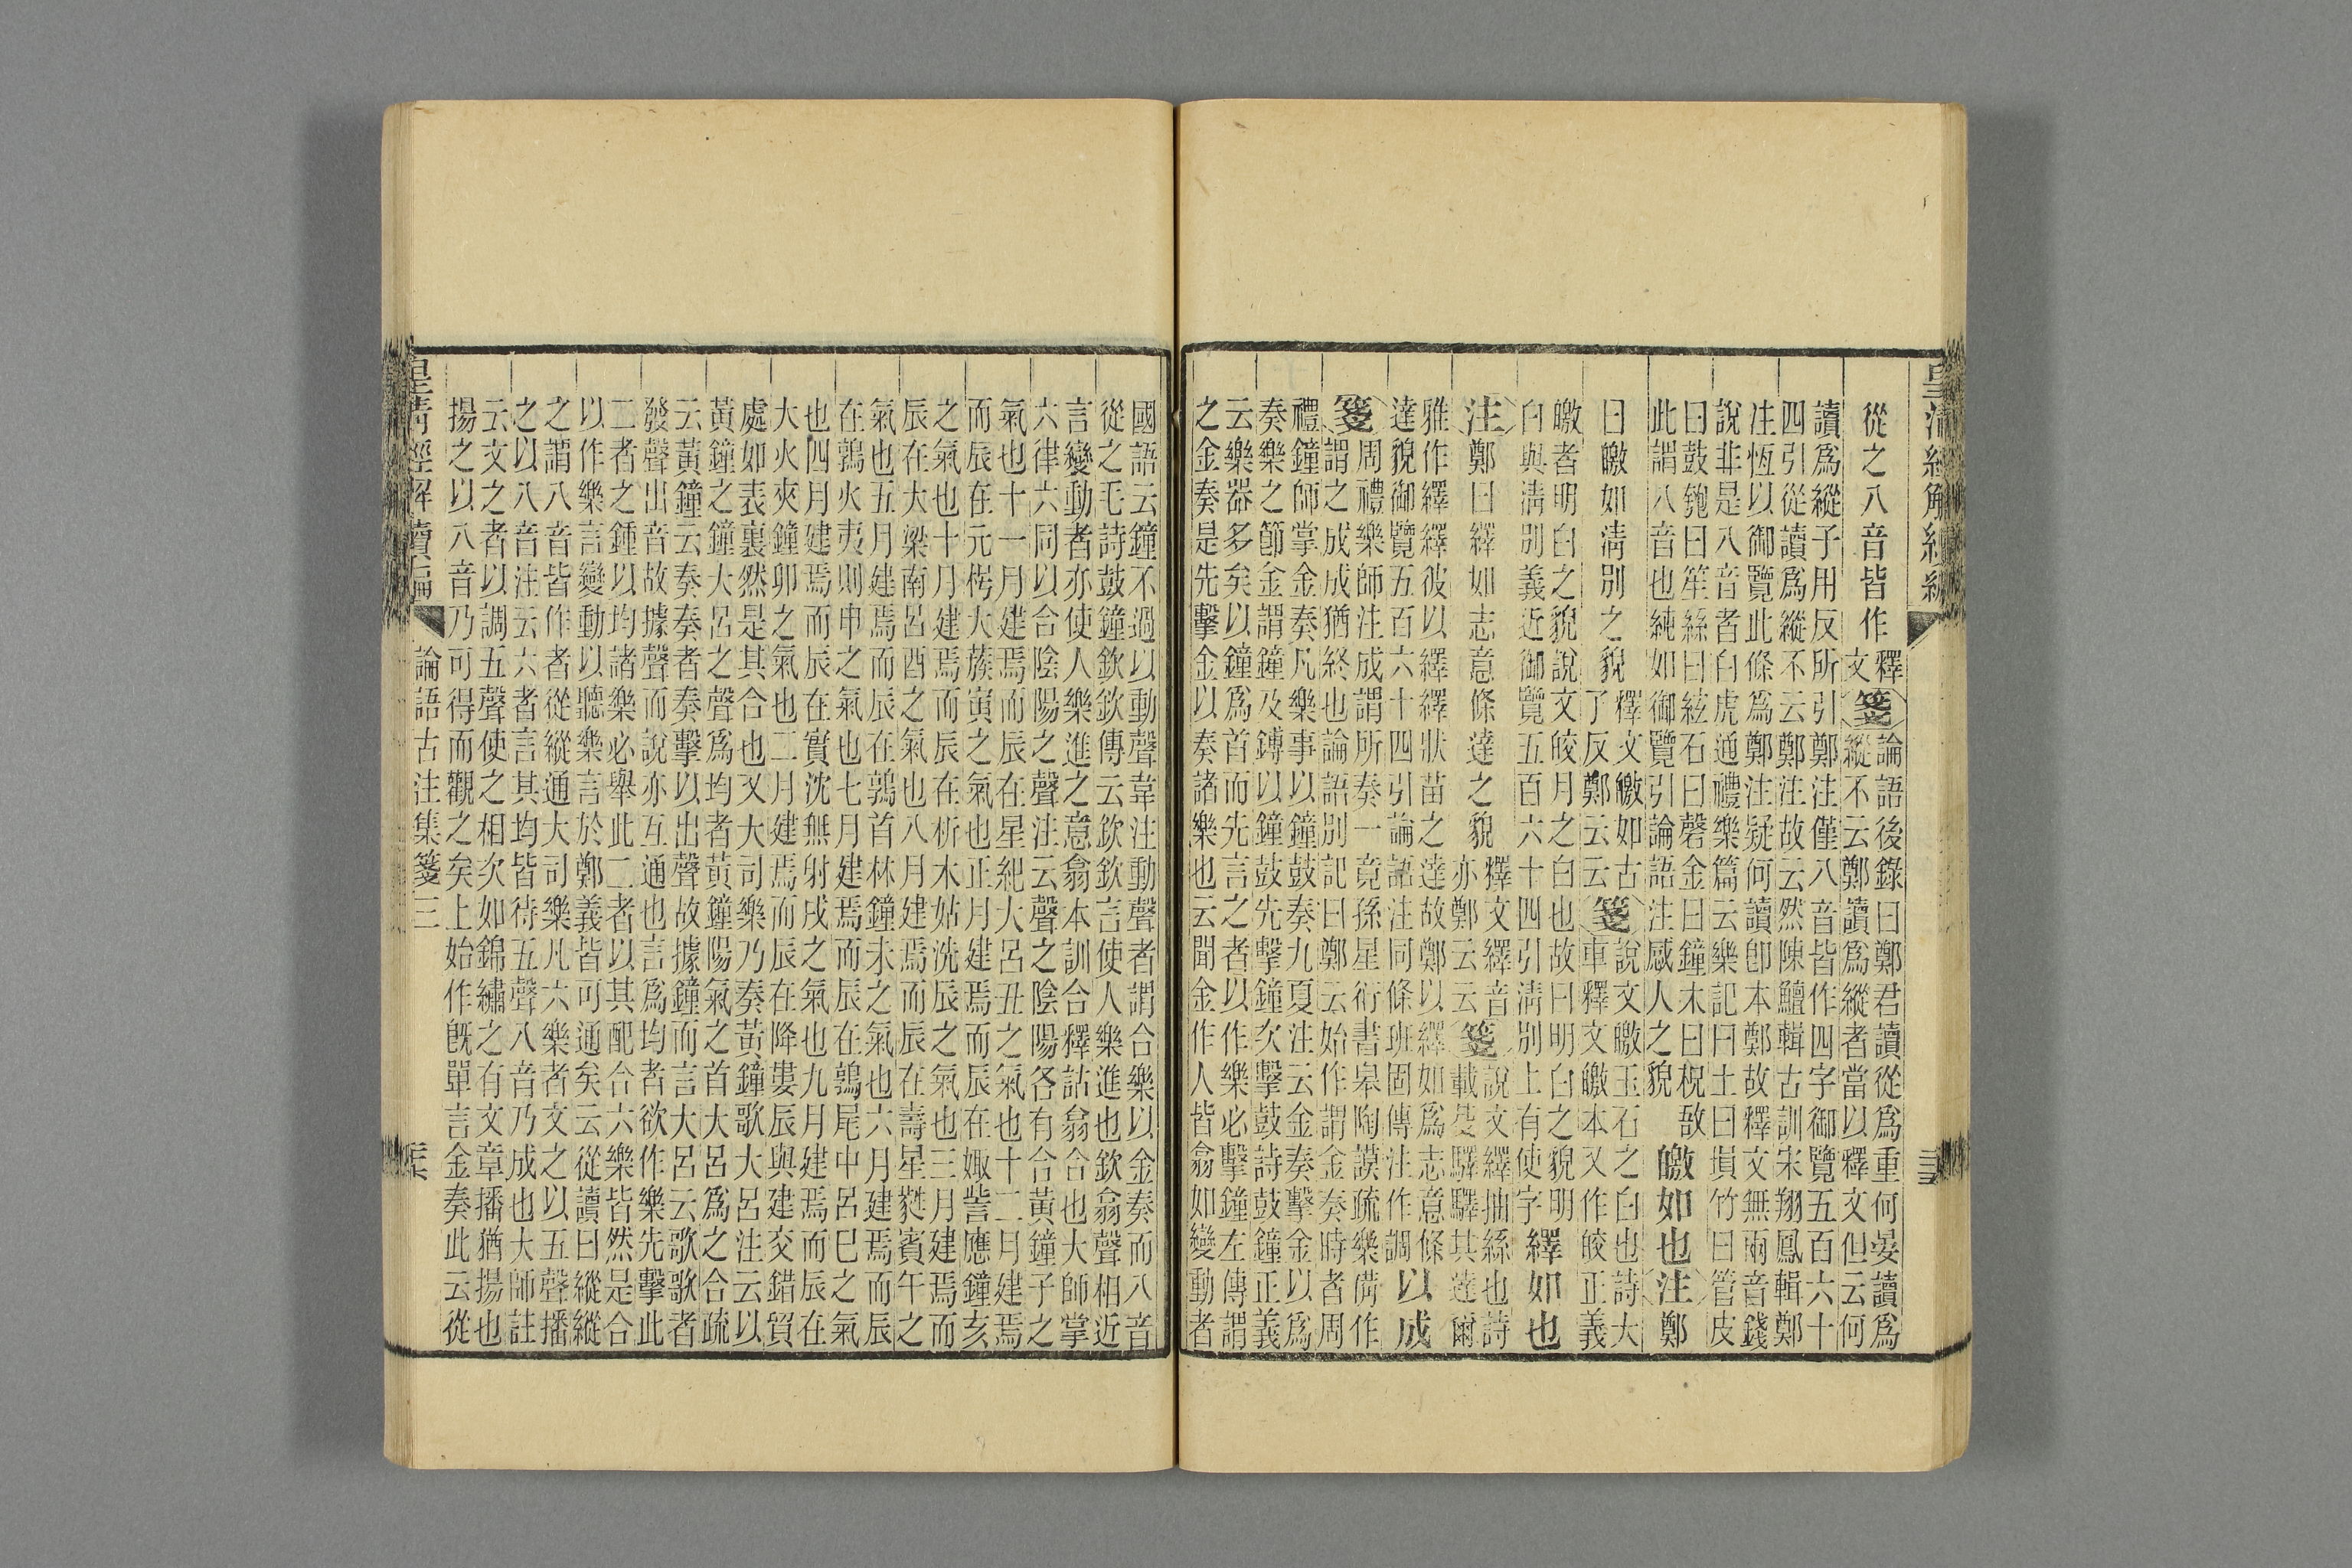 皇清經解續編
從之八音皆作釋文箋論語後錄曰鄭君讀從爲重何晏讀爲
縱不云鄭讀爲縱者當以釋文但云何
讀爲縱子用反所引鄭注僅八音皆作四字御覽五百六十
四引從讀爲縱不云鄭注故云然陳鱣輯古訓宋翔鳳輯鄭
注恆以御覽此條爲鄭注疑何讀卽本鄭故釋文無兩音錢
說非是八音者白虎通禮樂篇云樂記曰土曰塤竹曰管皮
曰鼓匏曰笙絲曰絃石曰磬金曰鐘木曰柷敔
此謂八音也純如御覽引論語注感人之貌
皦如也注鄭
曰皦如淸別之貌釋文皦如古
了反鄭云云箋說文皦玉石之白也詩大
車釋文皦本又作皎正義
皦者明白之貌說文皎月之白也故曰明白之貌明
白與淸別義近御覽五百六十四引淸別上有使字
繹如也
注鄭曰繹如志意條達之貌釋文繹音
亦鄭云云箋說文繹抽絲也詩
載芟驛驛其達爾
雅作繹繹彼以繹繹狀苗之達故鄭以繹如爲志意條
達貌御覽五百六十四引論語注同條班固傳注作調
以成
箋周禮樂師注成謂所奏一竟孫星衍書皋陶謨疏樂備作
謂之成成猶終也論語別記曰鄭云始作謂金奏時者周
禮鐘師掌金奏凡樂事以鐘鼓奏九夏注云金奏擊金以爲
奏樂之節金謂鐘及鎛以鐘鼓先擊鐘次擊鼓詩鼓鐘正義
云樂器多矣以鐘爲首而先言之者以作樂必擊鐘左傳謂
之金奏是先擊金以奏諸樂也云聞金作人皆翕如變動者
國語云鐘不過以動聲韋注動聲者謂合樂以金奏而八音
從之毛詩鼓鐘欽欽傳云欽欽言使人樂進也欽翕聲相近
言變動者亦使人樂進之意翕本訓合釋詁翕合也大師掌
六律六同以合陰陽之聲注云聲之陰陽各有合黃鐘子之
氣也十一月建焉而辰在星紀大呂丑之氣也十二月建焉
而辰在元枵大蔟寅之氣也正月建焉而辰在娵訾應鐘亥
之氣也十月建焉而辰在析木姑洗辰之氣也三月建焉而
辰在大梁南呂酉之氣也八月建焉而辰在壽星蕤賓午之
氣也五月建焉而辰在鶉首林鐘未之氣也六月建焉而辰
在鶉火夷則申之氣也七月建焉而辰在鶉尾中呂巳之氣
也四月建焉而辰在實沈無射戌之氣也九月建焉而辰在
大火夾鐘卯之氣也二月建焉而辰在降婁辰與建交錯貿
處如表裏然是其合也又大司樂乃奏黃鐘歌大呂注云以
黃鐘之鐘大呂之聲爲均者黃鐘陽氣之首大呂爲之合疏
云黃鐘云奏奏者奏擊以出聲故據鐘而言大呂云歌歌者
發聲出音故據聲而說亦互通也言爲均者欲作樂先擊此
二者之鍾以均諸樂必舉此二者以其配合六樂皆然是合
以作樂言變動以聽樂言於鄭義皆可通矣云從讀曰縱縱
之謂八音皆作者從縱通大司樂凡六樂者文之以五聲播
之以八音注云六者言其均皆待五聲八音乃成也大師註
云文之者以調五聲使之相次如錦繡之有文章播猶揚也
揚之以八音乃可得而觀之矣上始作旣單言金奏此云從
皇清經解續編
論語古注集箋三